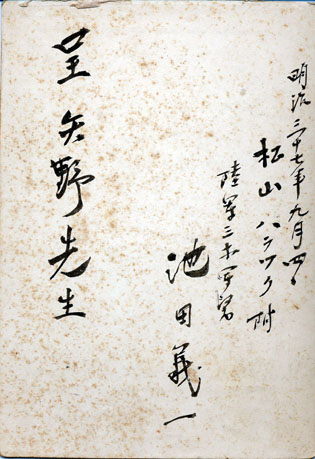 明治三十七年九月四日
松山ハラツク附
陸軍三等軍医
池田義一
呈矢野先生